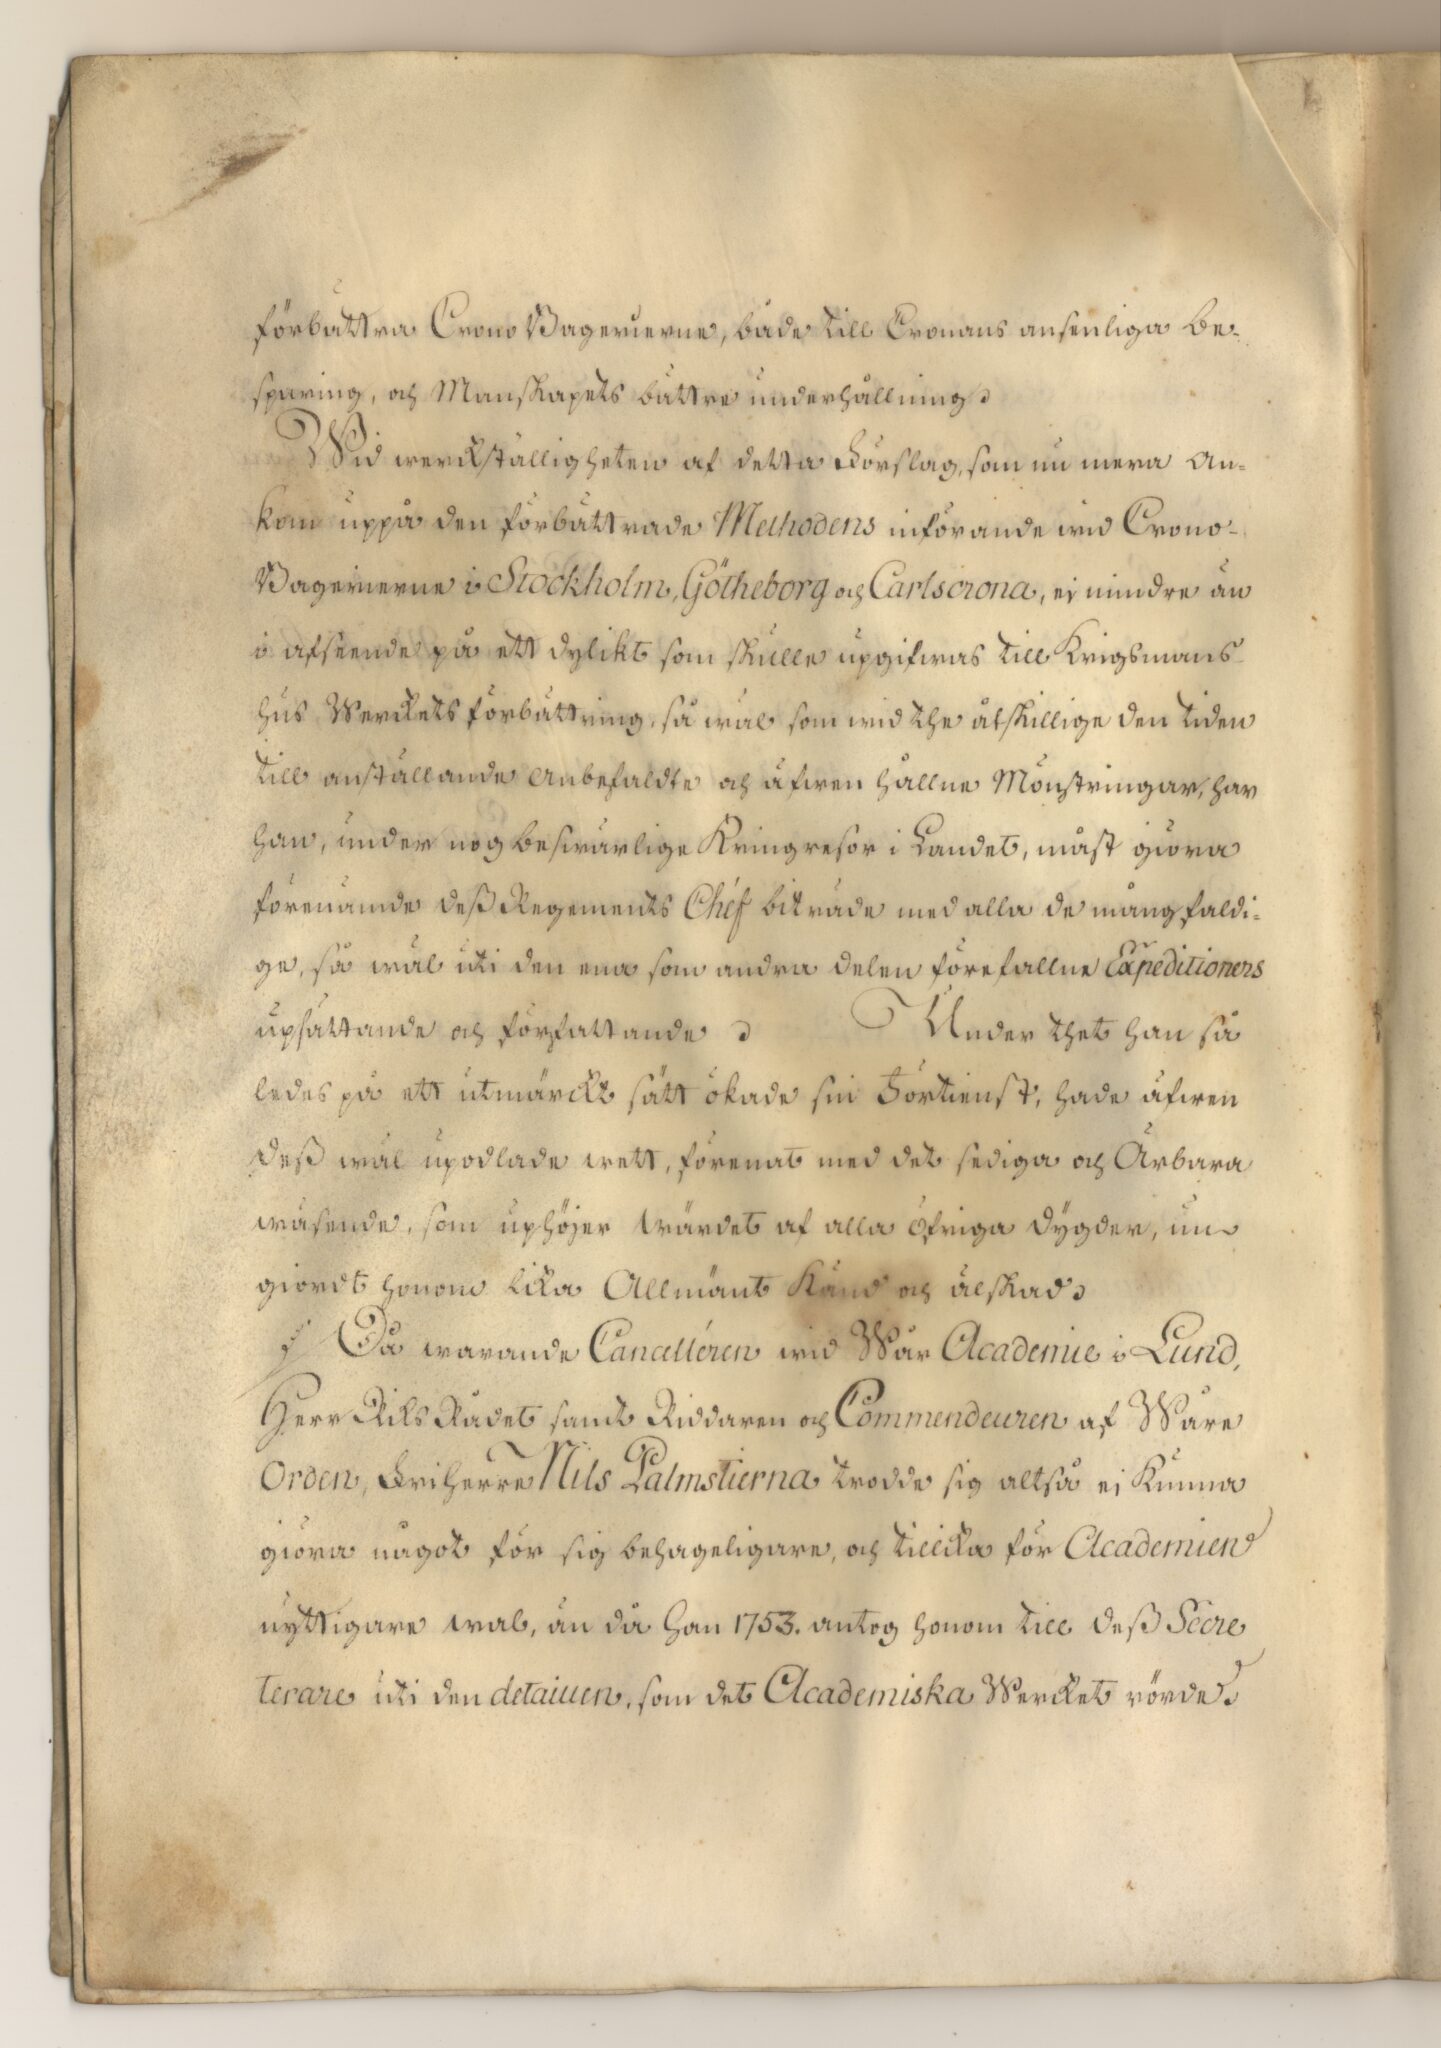 förbättra Crono Bagerierne, både till Cronans ansenliga be-
sparing, och Manskapets bättre underhållning.
Wid werckställigheten af detta Förslag, som nu mera an-
kom uppå den förbättrade Methodens införande wid Crono-
Bagerierne i Stockholm, Götheborg och Carlscrona, ej mindre än
i afseende på ett dylikt som skulle upgifwas till Krigsmans-
hus Werckets förbättring, så wäl som wid the åtskillige den tiden
till anställande anbefaldte och äfwen hållne Mönstringar, har
han, under nog beswärlige Kringresor i Landet, måst giöra
förenämde deß Regements Chéf biträde med alla de mångfaldi-
ge, så wäl uti den ena som andra delen förefallne Expeditioners
upsättande och författande. Under thet han så
ledes på ett utmärckt sätt ökade sin Förtienst, hade äfwen
deß wäl upodlade wett, förenat med det sediga och Ärbara
wäsende, som uphöjer wärdet af alla öfriga dygder, un-
giordt honom lika Allmänt Känd och älskad.
Då warande Cancelléren wid Wår Academie i Lund,
Herr Riks Rådet samt Riddaren och Commendeuren af Wåre
Orden, Friherre Nils Palmstierna trodde sig altså ej Kunna
giöra något för sig behageligare, och tillika för Academien
nyttigare wal, än då Han 1753. antog honom till deß Secre
terare uti den detaillen, som det Academiska Wercket rörde.